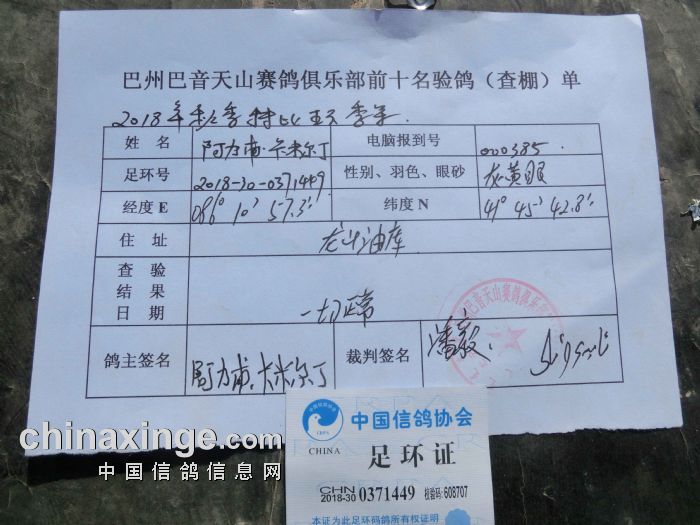 巴州巴音天山赛鸽俱乐部前十名验鸽（查棚）单
2018年秋季特比环 季军
姓 名 阿力甫·卡米尔丁 电脑报到号 000385
足环号 2018-30-0371449 性别、羽色、眼砂 灰黄眼
经度E 086° 10' 57.3" 纬度N 41° 45' 42.8"
住 址 油库
查 验 结 果 日 期 一切正常
鸽主签名 阿力甫·卡米尔丁 裁判签名 潘毅
巴音天山赛鸽俱乐部
chinaxinge.com
中国信鸽信息网
中国信鸽协会
CHINA
足环证
CHN
2018-30 0371449 校验码:608707
本证为此足环码鸽所有权证明